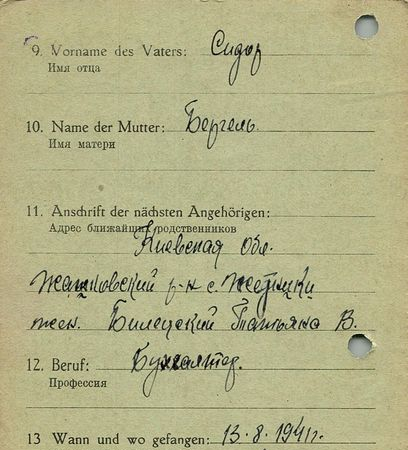 9. Vorname des Vaters: Сидор
Имя отца
10. Name der Mutter: Бергель
Имя матери
11. Anschrift der nächsten Angehörigen:
Адрес ближайших родственников
Киевская обл.
Жашковский р-н с.
жен. Билецкий Татьяна В.
12. Beruf: Бухгалтер.
Профессия
13 Wann und wo gefangen: 13.8.1941г.